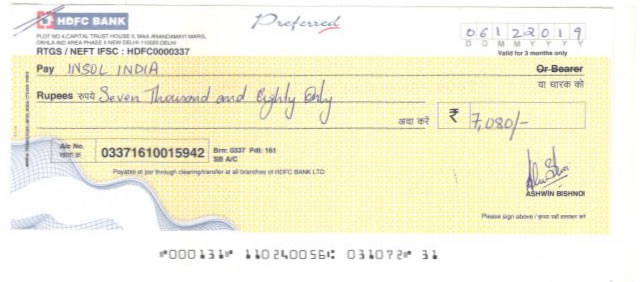 HDFC BANK
Preferred
PLOT NO 4,CAPITAL TRUST HOUSE II, MAA ANANDAMAYI MARG,
OKHLA IND AREA PHASE II NEW DELHI-110065 DELHI
RTGS / NEFT IFSC : HDFC0000337
06122019
D D M M Y Y Y Y
Valid for 3 months only
Pay INSOL INDIA Or Bearer
या धारक को
Rupees रुपये Seven Thousand and Eighty Only
अदा करें ₹ 7,080/-
A/c No.
खाता क्र. 03371610015942 Brn: 0337 Pdt: 161
SB A/C
Payable at par through clearing/transfer at all branches of HDFC BANK LTD
ASHWIN BISHNOI
Please sign above /
⑈000131⑈ 110240056⑆ 031072⑈ 31